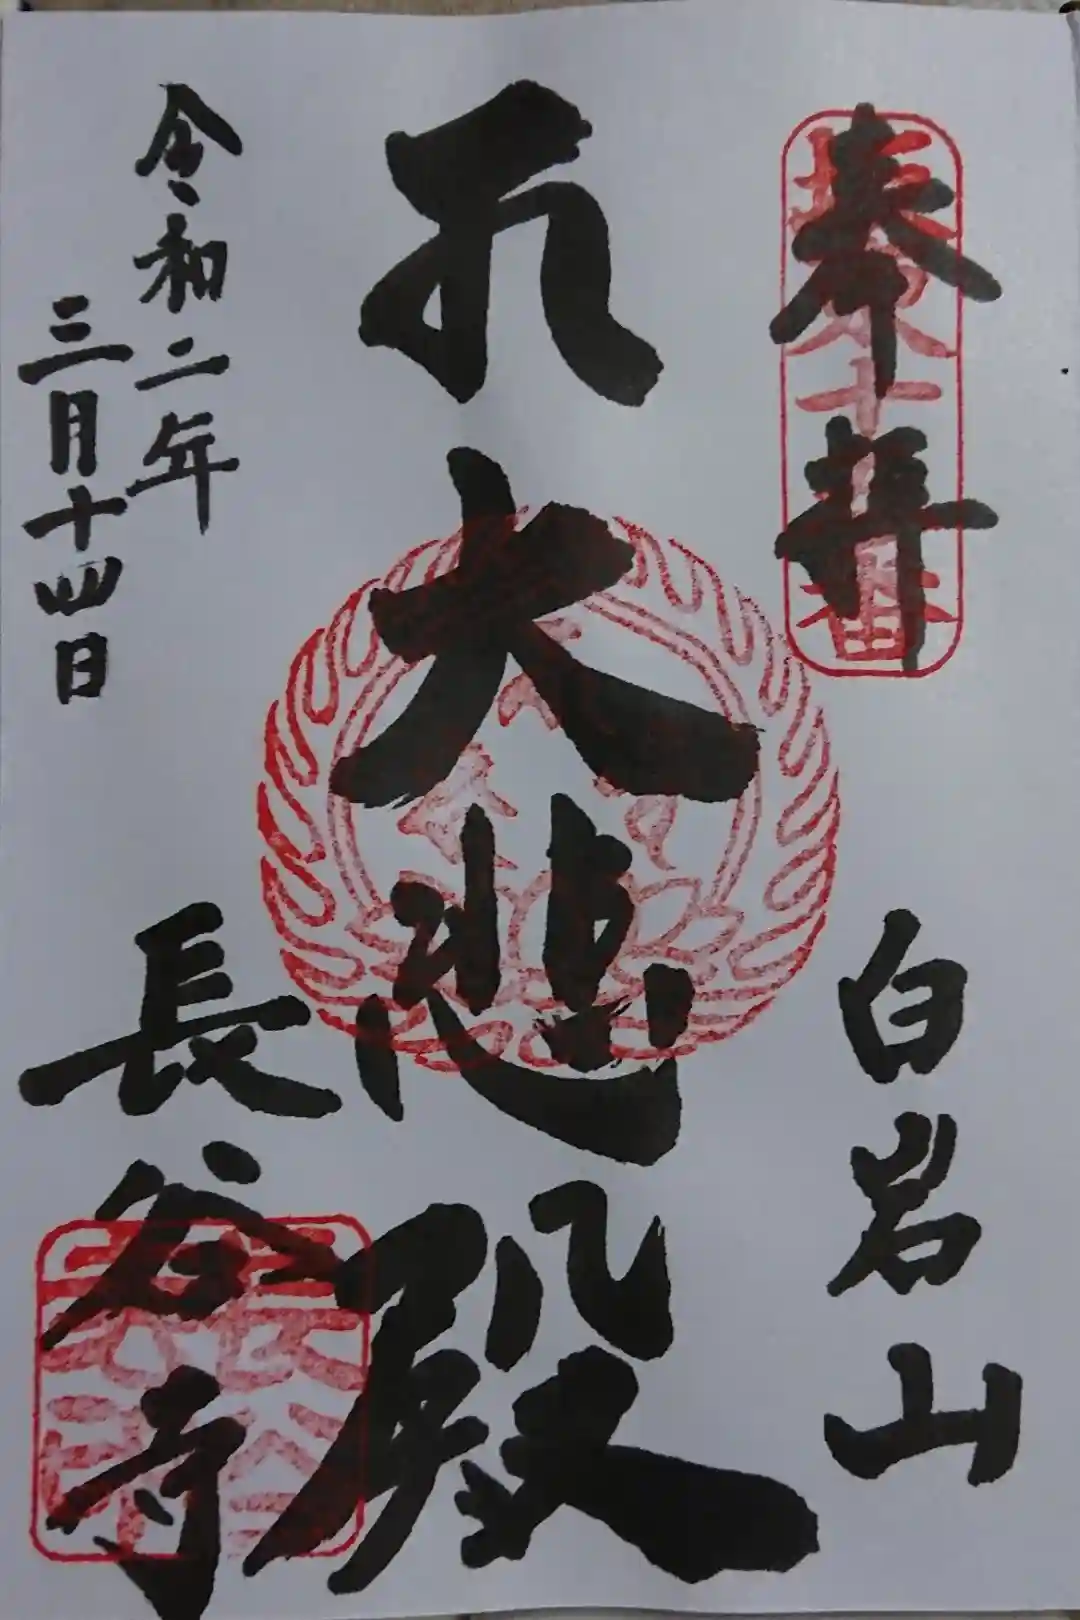 奉拝
坂東十五番
白岩山
大悲殿
令和二年
三月十四日
長谷寺